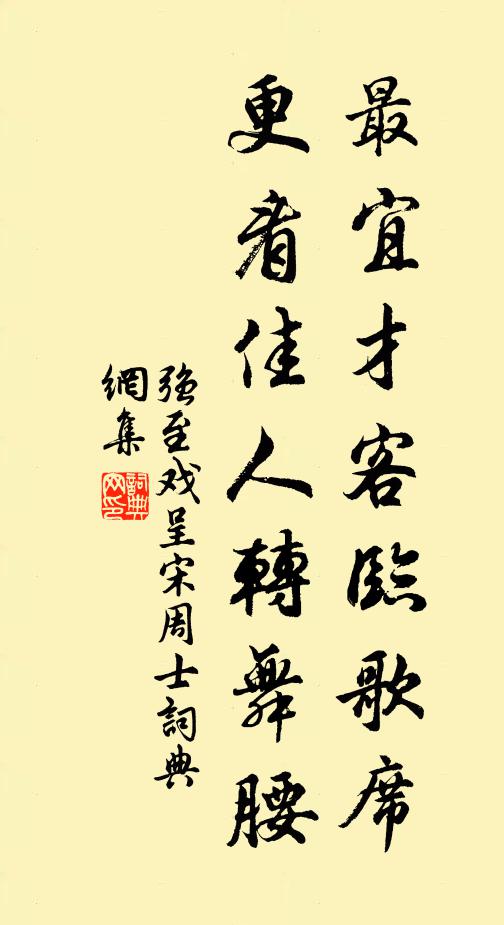 最宜才客臨歌席
更看佳人轉舞腰
強至戏呈宋周士詞典
網集
詞典
网印